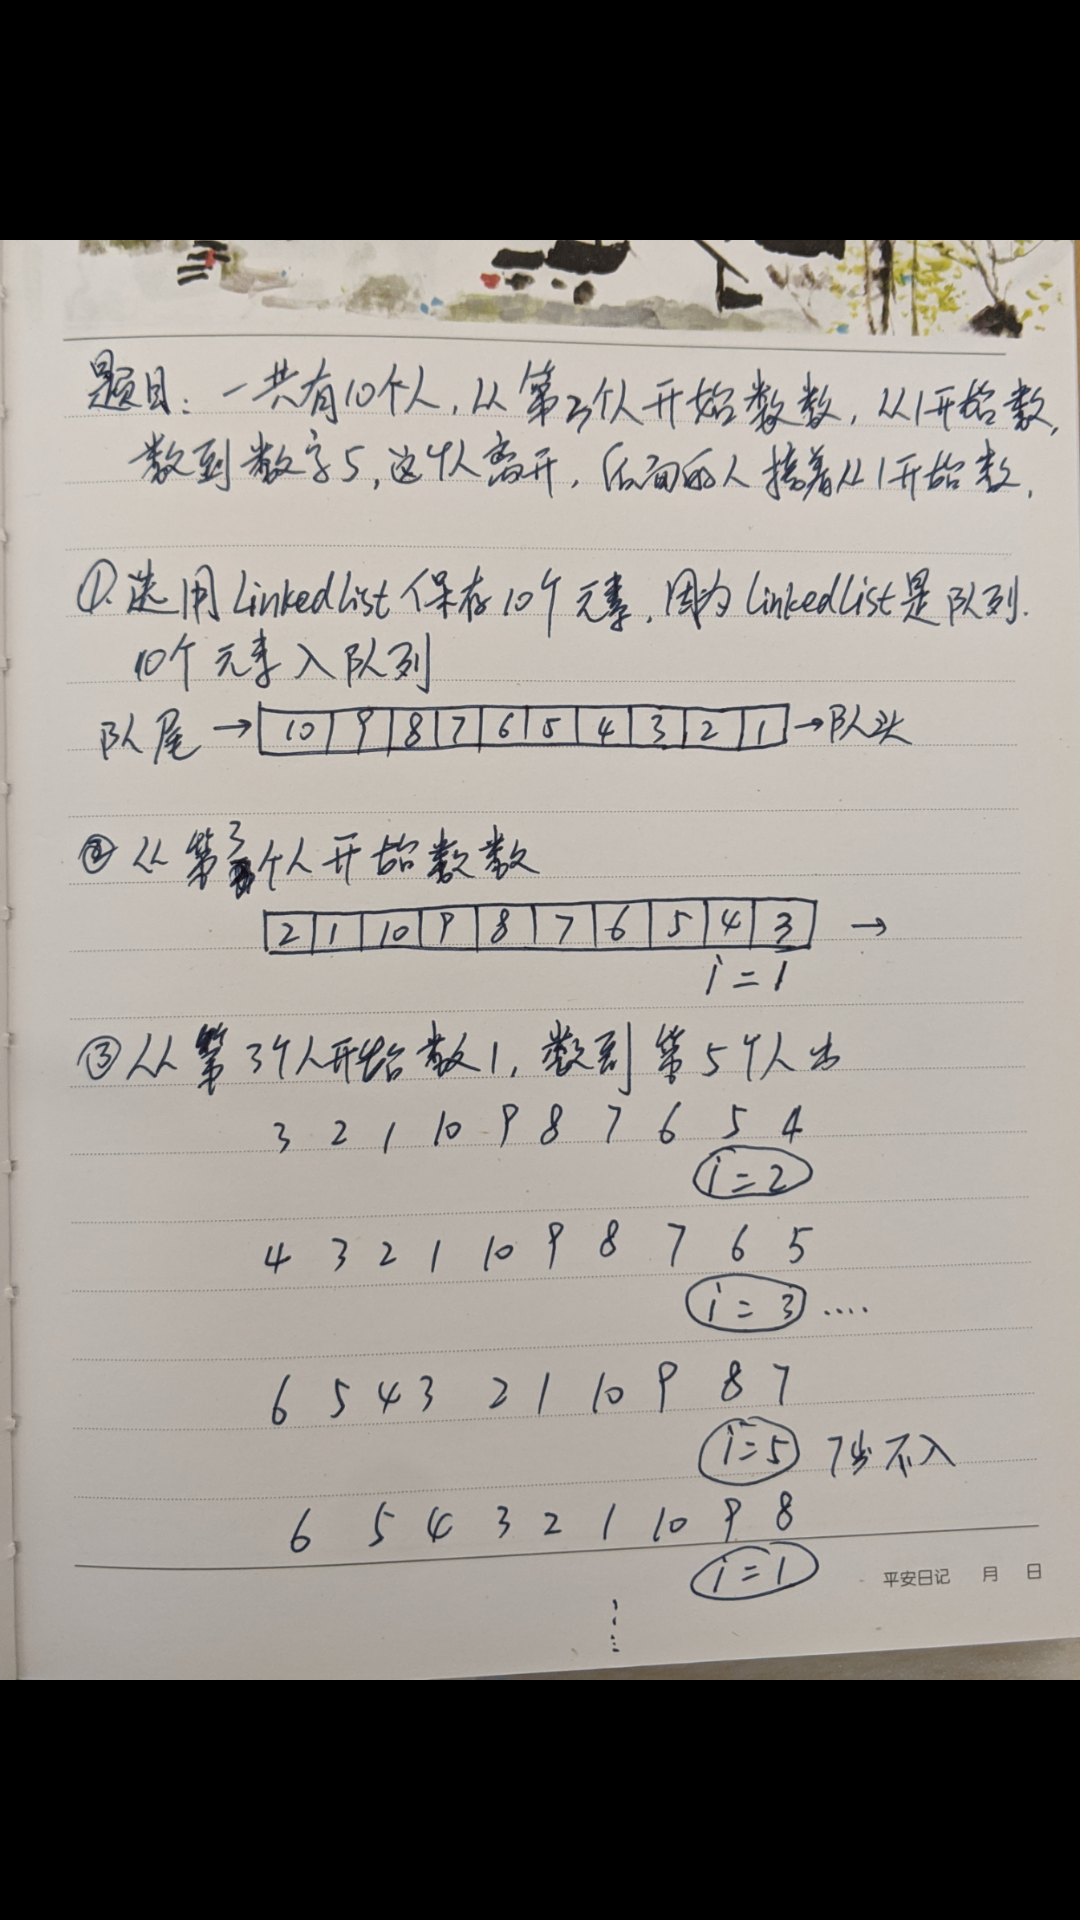 题目：一共有10个人，从第3个人开始数数，从1开始数，
数到数字5，这个人离开，后面的人接着从1开始数．
①．选用LinkedList保存10个元素，因为LinkedList是队列．
10个元素入队列
队尾 → 10 9 8 7 6 5 4 3 2 1 → 队头
② 从第3个人开始数数
2 1 10 9 8 7 6 5 4 3 →
i = 1
③从第3个人开始数1，数到第5个人出
3 2 1 10 9 8 7 6 5 4
i = 2
4 3 2 1 10 9 8 7 6 5
i = 3 ....
6 5 4 3 2 1 10 9 8 7
i = 5 7出不入
6 5 4 3 2 1 10 9 8
i = 1
平安日记 月 日